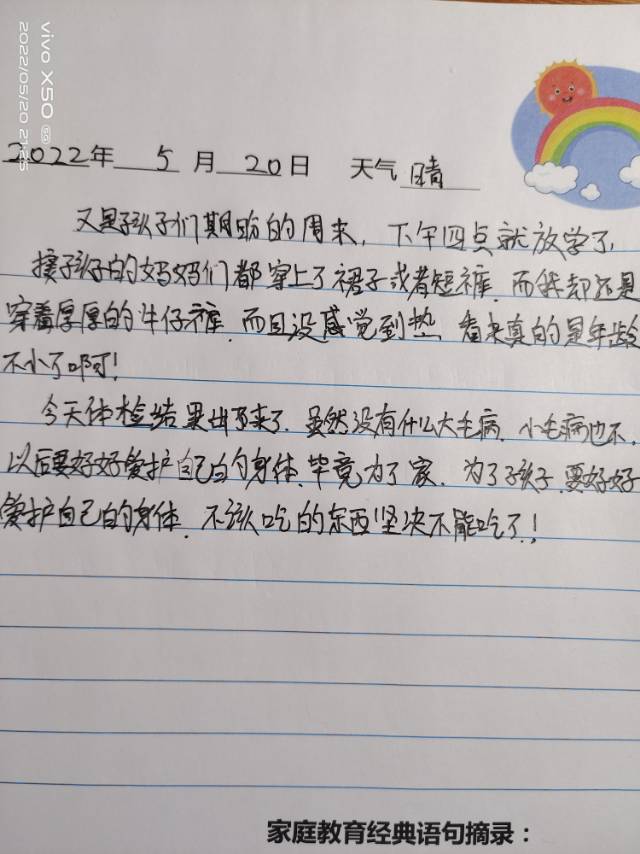 vivo X50 5G
2022/05/20 21:25
2022年 5 月 20日 天气 晴
又是孩子们期盼的周末，下午四点就放学了，
接孩子的妈妈们都穿上了裙子或者短裤，而我却还是
穿着厚厚的牛仔裤，而且没感觉到热，看来真的是年龄
不小了啊！
今天体检结果出来了，虽然没有什么大毛病，小毛病也不，
以后要好好爱护自己的身体，毕竟为了家，为了孩子，要好好
爱护自己的身体，不该吃的东西坚决不能吃了！
家庭教育经典语句摘录：